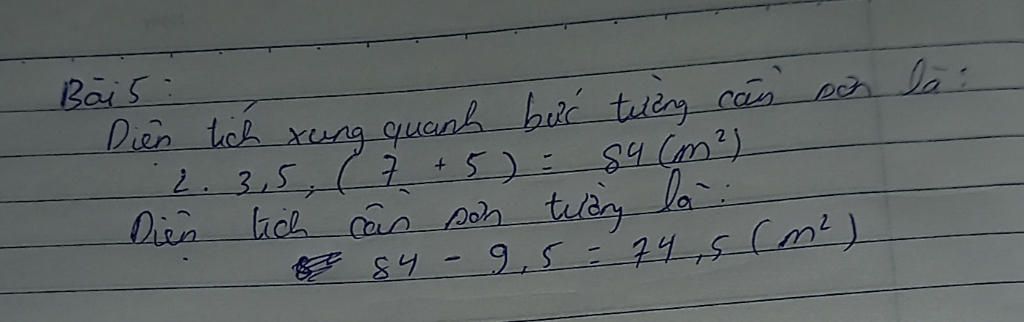 Bài 5:
Diện tích xung quanh bức tường cần sơn là:
2. 3,5. (7 + 5) = 84 (m²)
Diện tích cần sơn tường là:
84 - 9,5 = 74,5 (m²)